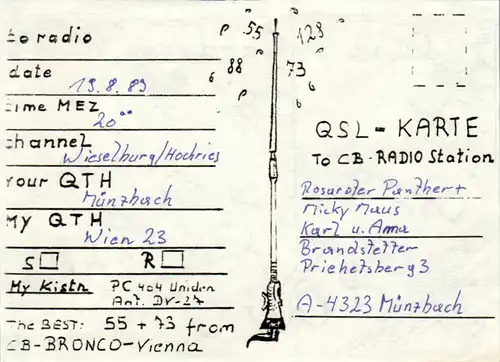 to radio
date
19.8.89
time MEZ
20°°
channel
Wieselburg/Hochries
your QTH
Münzbach
My QTH
Wien 23
S□ R□
My Kistn PC 404 Uniden
Ant. DV-27
The BEST: 55 + 73 from
CB-BRONCO-Vienna
55 128
88 73
QSL-KARTE
To CB-RADIO Station
Rosaroter Panther +
Micky Maus
Karl u. Anna
Brandstetter
Priehetsberg 3
A-4323 Münzbach